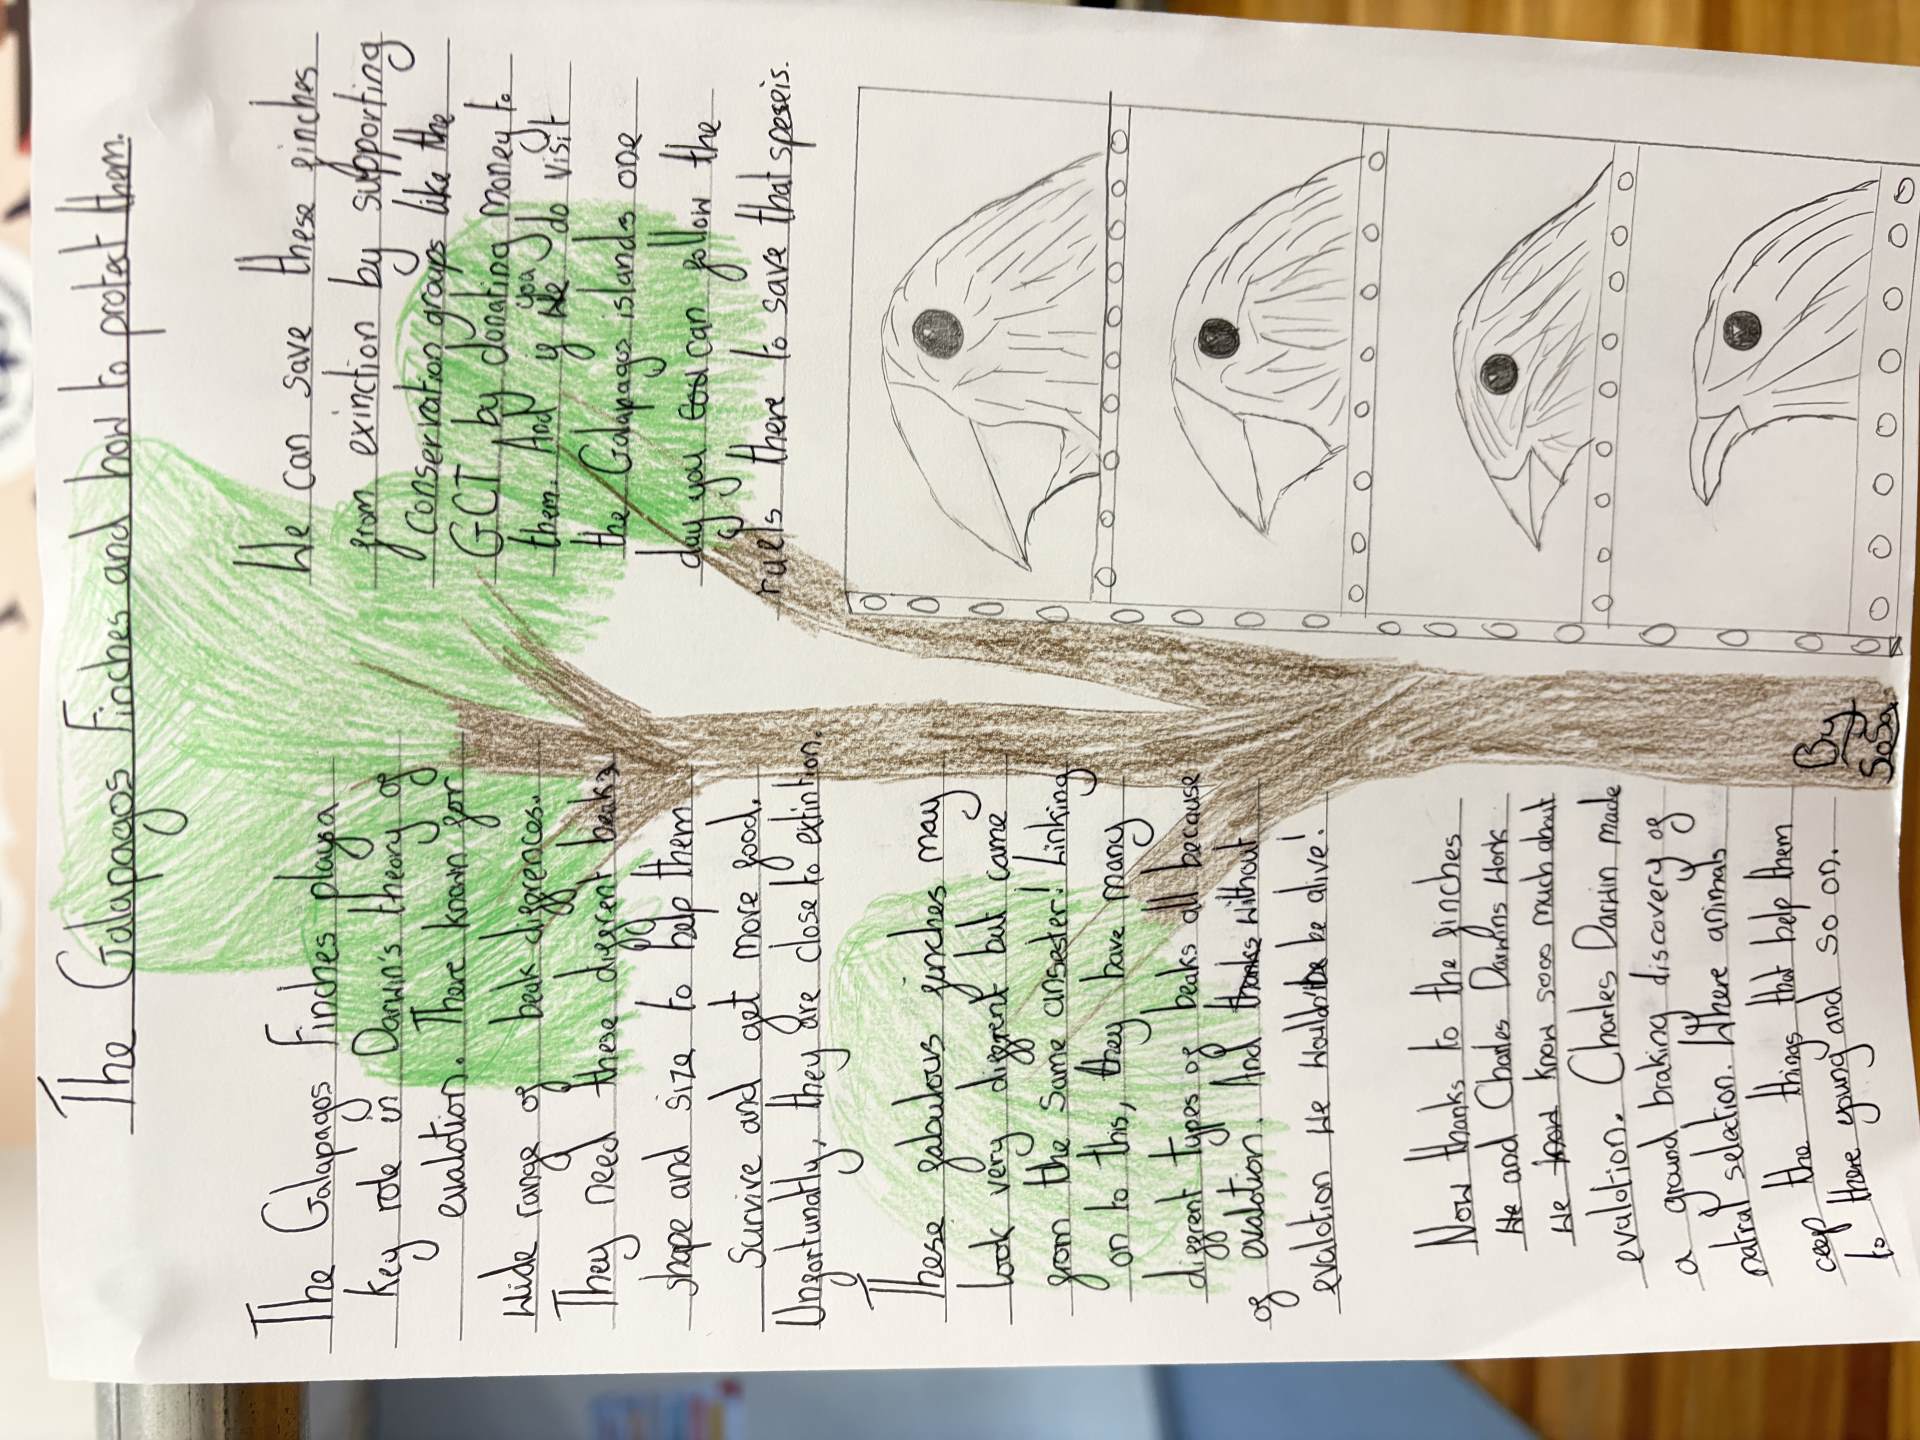 The Galapagos Finches and how to protect them.
The Galapagos Finches play a
key role in Darwin's theory of
evalotion. There known for
wide range of beak diffrences.
They need these diffrent beaks
shape and size to help them
Survive and get more food.
Unfortunatly, they are close to extintion.
These fabulous finches may
look very diffrent but came
from the same ansester! Linking
on to this, they have many
diffrent types of beaks all because
of evalotion. And thanks without
evalotion we wouldn't be be alive!
Now thanks to the finches
we and Charles Dawins work
we know sooo much about
evalotion. Charles Darwin made
a ground braking discovery of
natral selection. Where animals
ceep the things that help them
to there young and so on.
We can save these finches
from exinction by supporting
conserivation groups like the
GCT by donating money to
them. And if you do visit
the Galapagos islands one
day you can follow the
ruels there to save that speseis.
By
SoSo